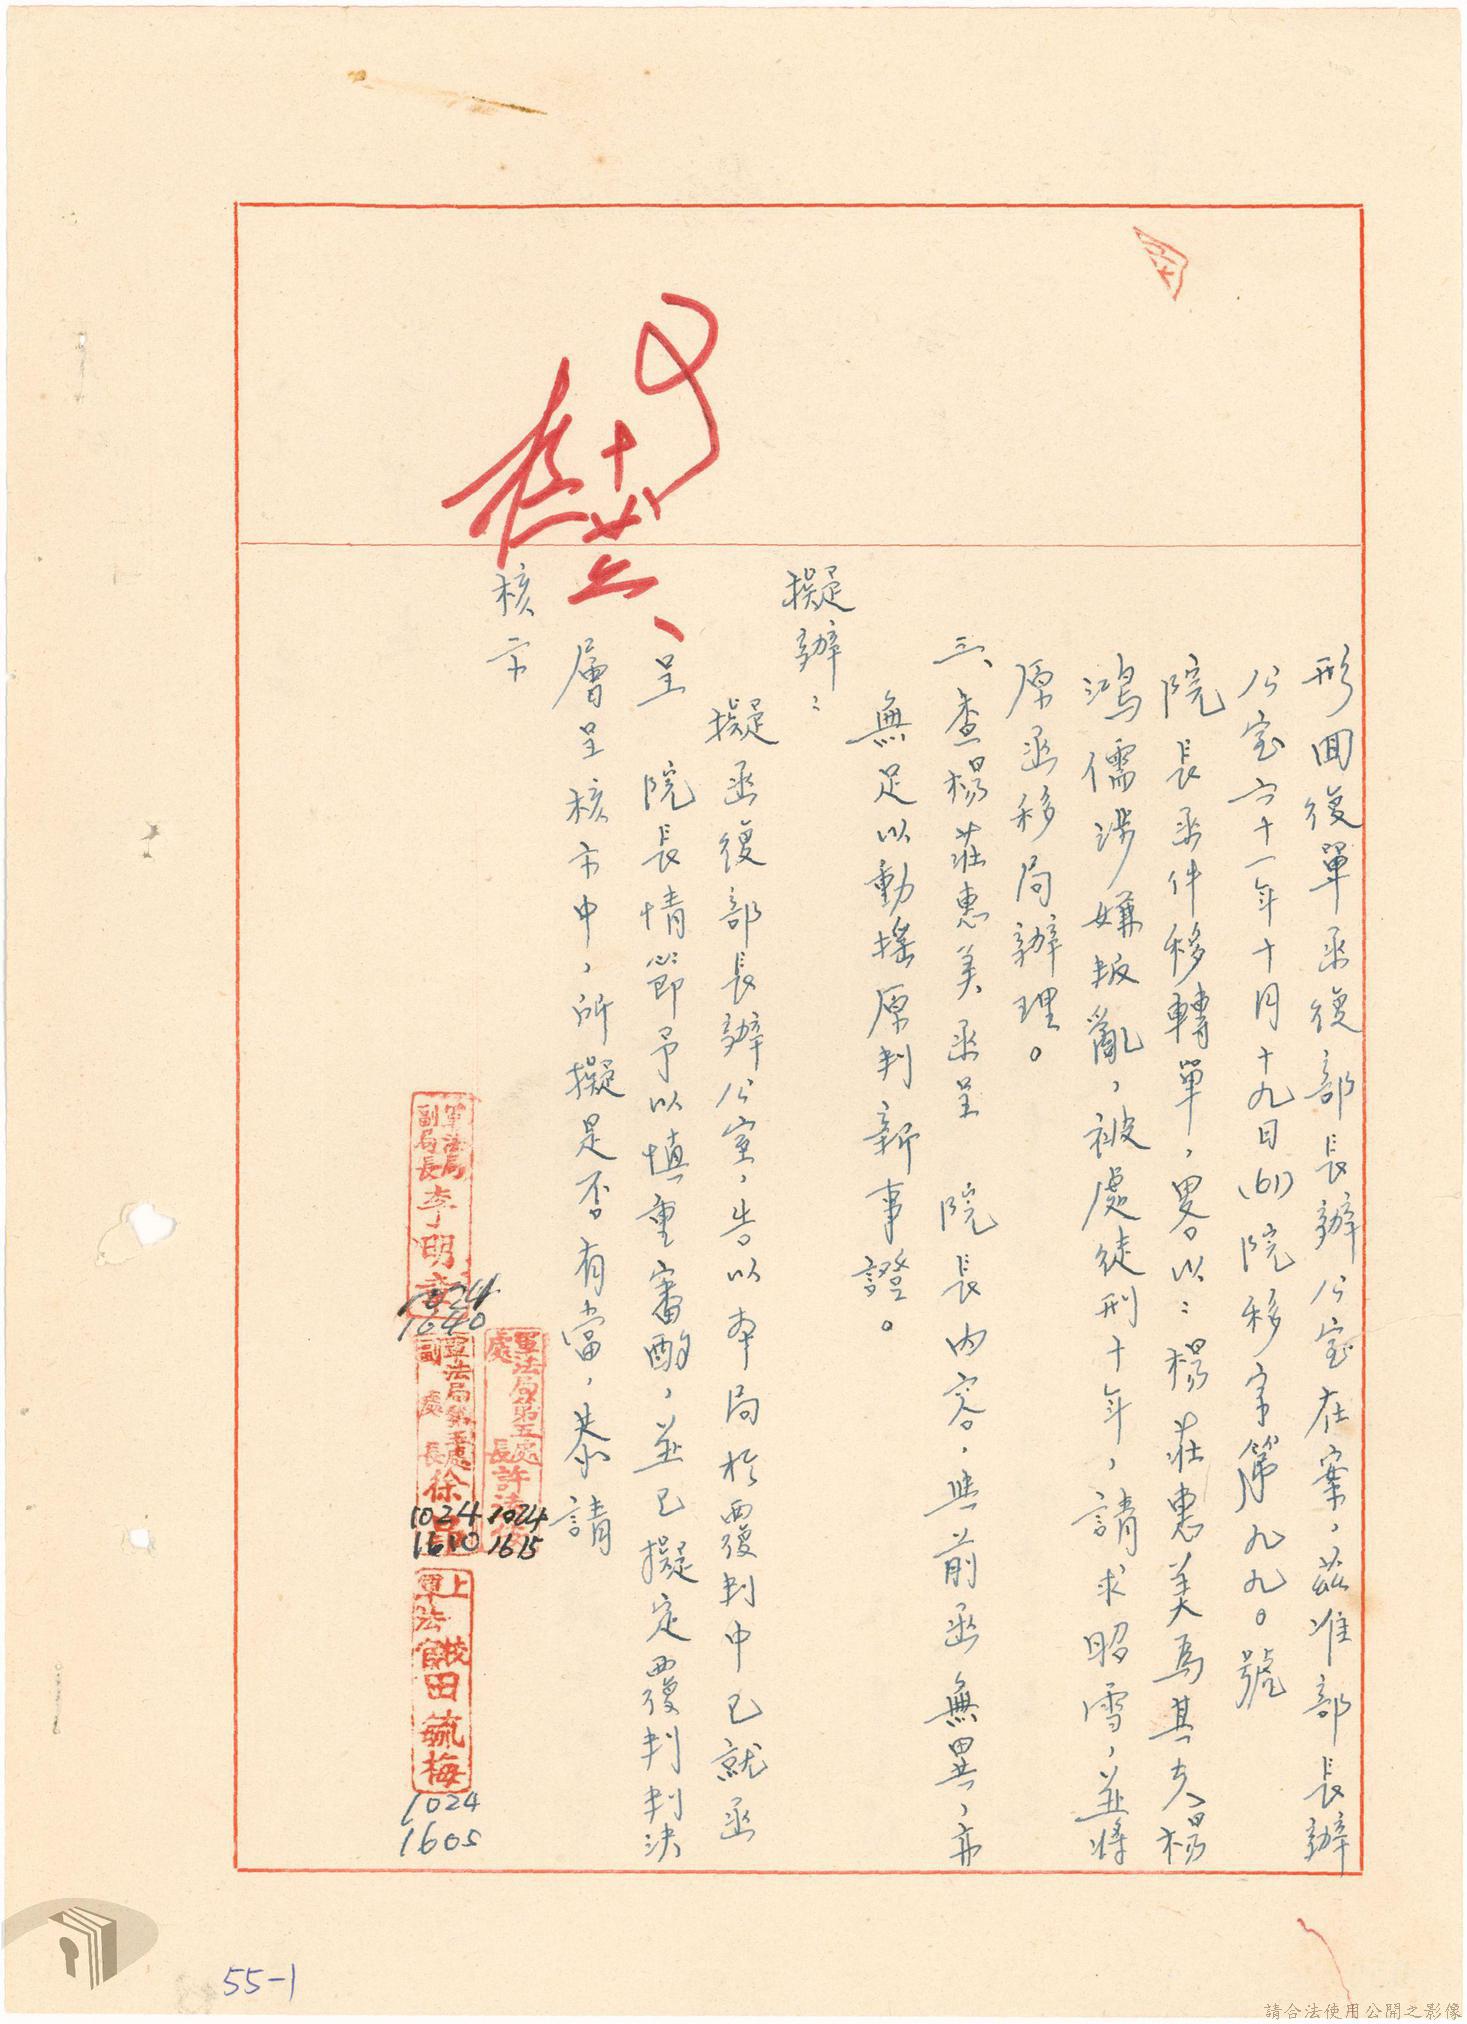 形回復單函復部長辦公室在案，茲准部長辦
公室六十一年十月十九日(61)院移字第九九〇號
院長函件移轉單，略以：楊莊惠美為其夫楊
鴻儒涉嫌叛亂，被處徒刑十年，請求昭雪，並將
原函移局辦理。
三、查楊莊惠美函呈 院長內容，與前函無異，亦
無足以動搖原判新事證。
擬辦：
擬函復部長辦公室，告以本局於覆判中已就函
呈 院長情節予以慎重審酌，並已擬定覆判判決
層呈核示中，所擬是否有當，恭請
核示
軍法局第五處
處長許
1024
1615
軍法局
副局長李明
1024
1640
軍法局第五處
副處長徐
1024
1610
上校
軍法官田毓梅
1024
1605
55-1
請合法使用公開之影像